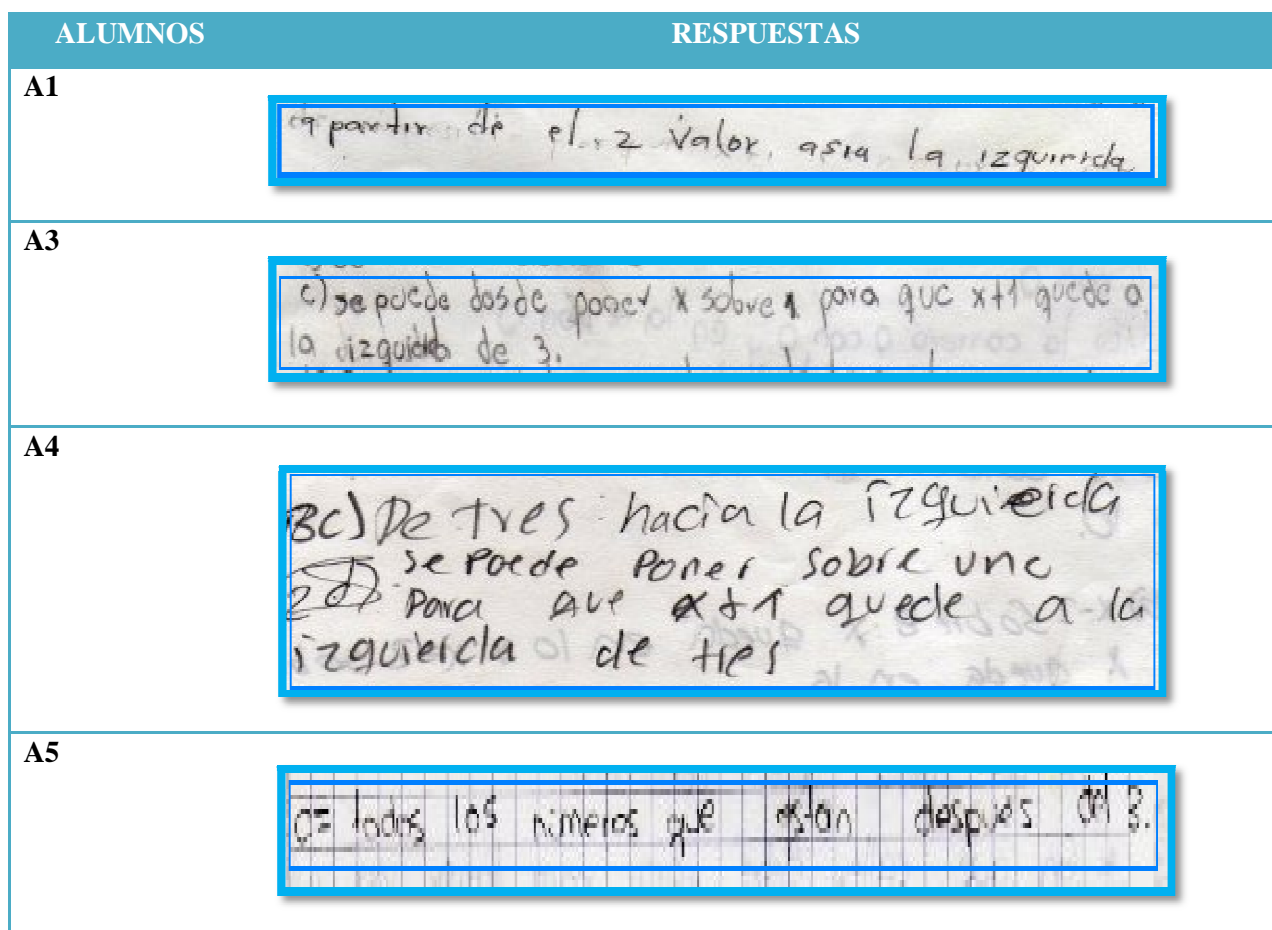 ALUMNOS RESPUESTAS
A1
a partir de el 2 valor, asia la izquierda
A3
c) se puede dosde poner x sobre 1 para que x+1 quede a
la izquida de 3.
A4
3c) De tres hacia la izquieida
se poede poner sobre uno
Para que x+1 quede a la
izquieida de tres
A5
c= todos los nimeros que estan despues del 3.